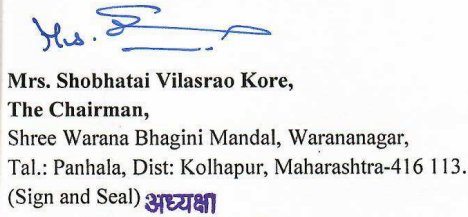 Mrs. Shobhatai Vilasrao Kore,
The Chairman,
Shree Warana Bhagini Mandal, Warananagar,
Tal.: Panhala, Dist: Kolhapur, Maharashtra-416 113.
(Sign and Seal) अध्यक्षा